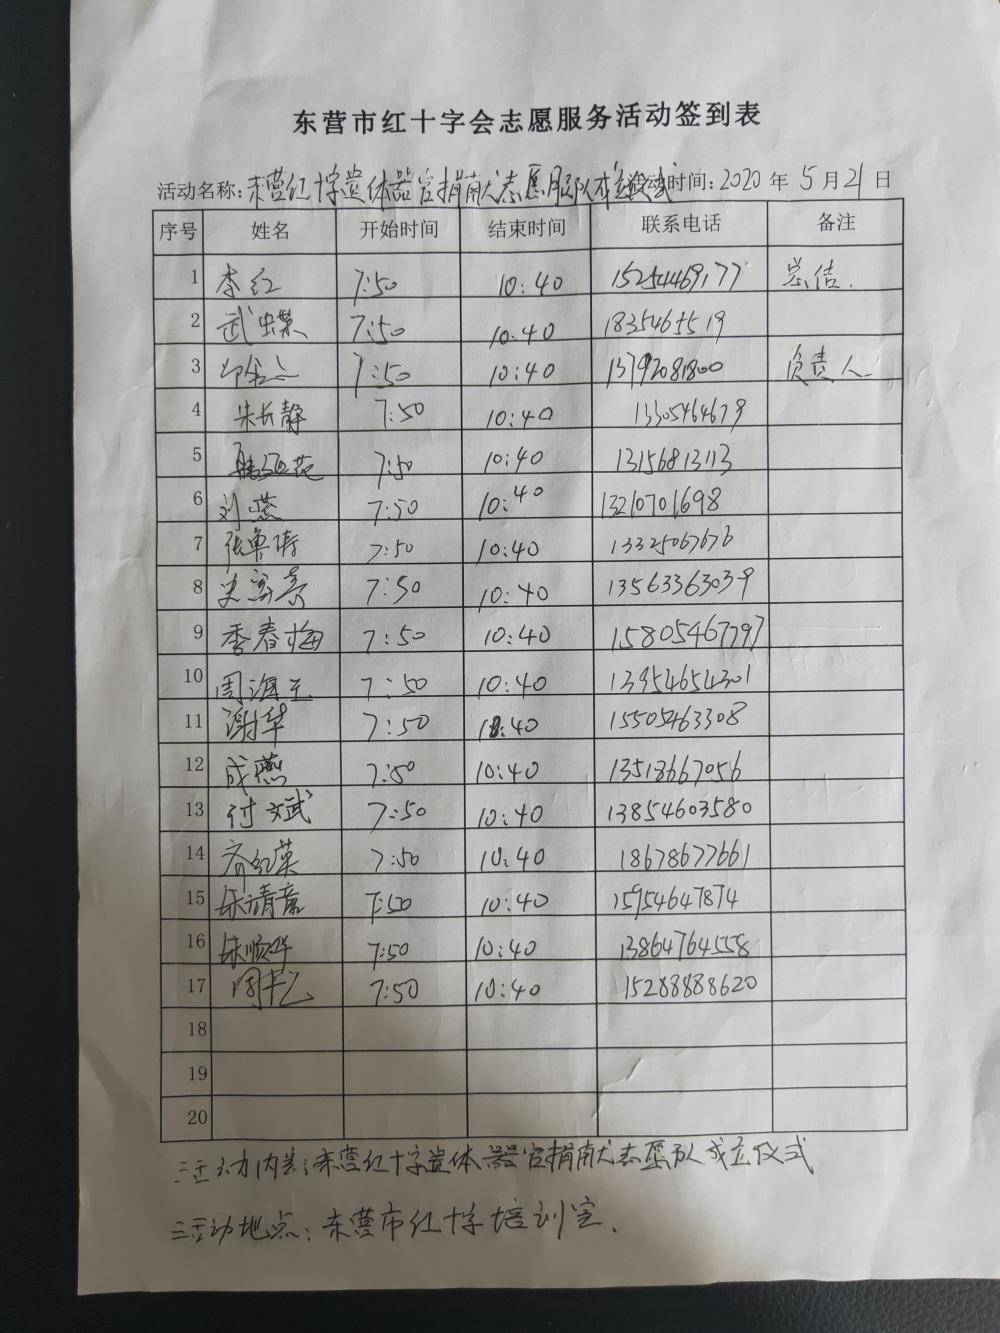 东营市红十字会志愿服务活动签到表
活动名称:东营红十字遗体器官捐献志愿服队成立仪式 活动时间:2020年5月21日
序号 姓名 开始时间 结束时间 联系电话 备注
1 李红 7:50 10:40 15254469177 总结.
2 武蝶 7:50 10:40 18354655519
3 7:50 10:40 13792081800 负责人
4 朱长静 7:50 10:40 13305464679
5 7:50 10:40 13156813113
6 刘燕 7:50 10:40 13210701698
7 7:50 10:40 13325067676
8 7:50 10:40 13563363039
9 季春梅 7:50 10:40 15805467797
10 周海玉 7:50 10:40 13954654301
11 谢华 7:50 10:40 15505463308
12 成燕 7:50 10:40 13518667056
13 付文武 7:50 10:40 13854603580
14 齐红英 7:50 10:40 18678677661
15 7:50 10:40 15954647874
16 7:50 10:40 13864764558
17 7:50 10:40 15288888620
18
19
20
活动内容:东营红十字遗体器官捐献志愿队成立仪式
活动地点:东营市红十字培训室.